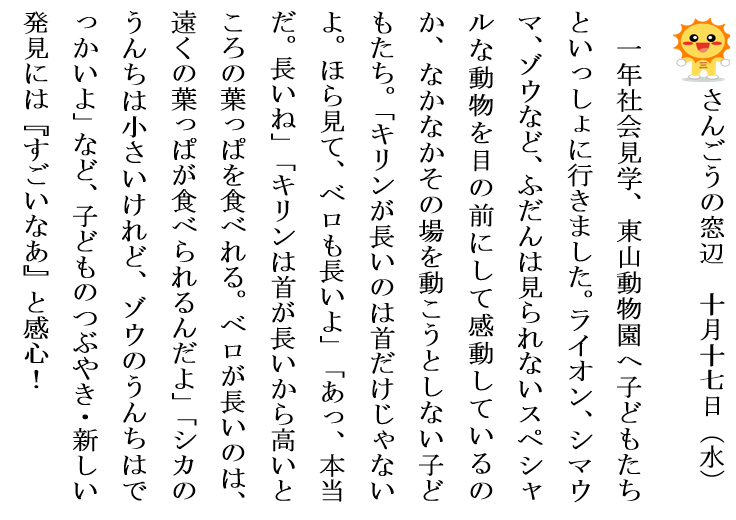 さんごうの窓辺　十月十七日（水）
一年社会見学、東山動物園へ子どもたち
といっしょに行きました。ライオン、シマウ
マ、ゾウなど、ふだんは見られないスペシャ
ルな動物を目の前にして感動しているの
か、なかなかその場を動こうとしない子ど
もたち。「キリンが長いのは首だけじゃない
よ。ほら見て、ベロも長いよ」「あっ、本当
だ。長いね」「キリンは首が長いから高いと
ころの葉っぱを食べれる。ベロが長いのは、
遠くの葉っぱが食べられるんだよ」「シカの
うんちは小さいけれど、ゾウのうんちはで
っかいよ」など、子どものつぶやき・新しい
発見には『すごいなあ』と感心！